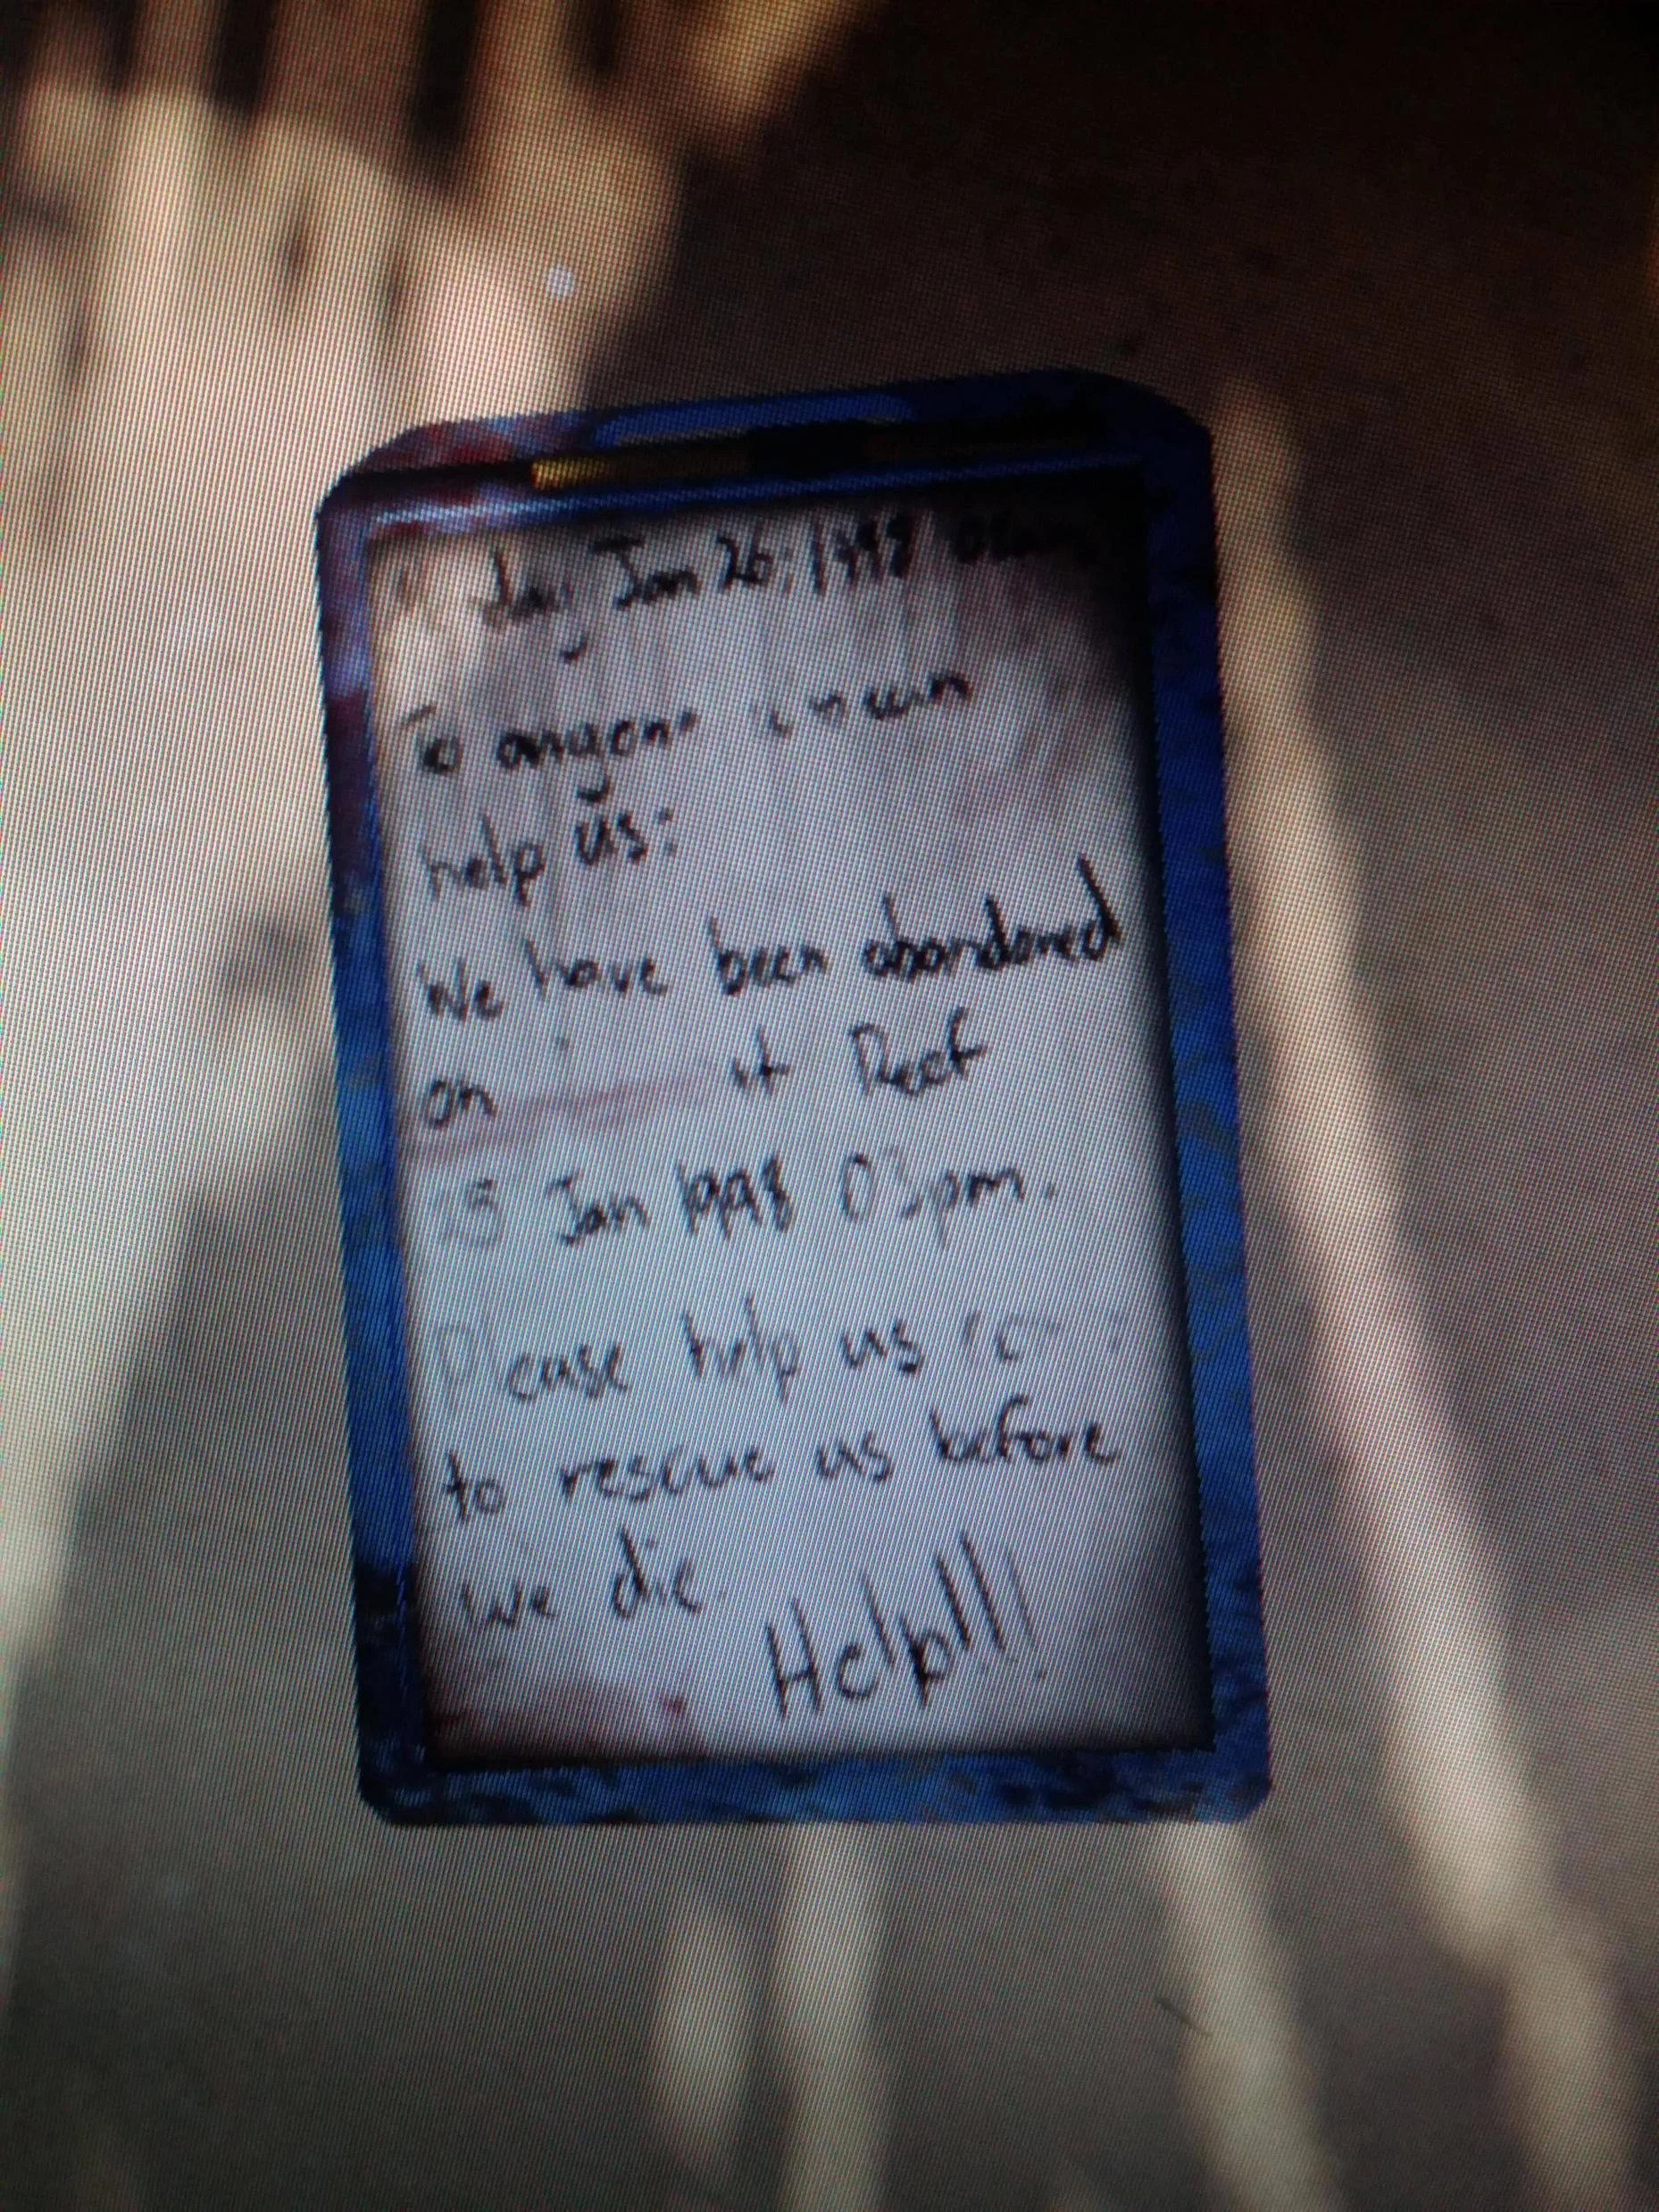 day Jan 26; 1998
To anyone
help us:
We have been abandoned
on Reef
Jan 1998 pm.
help us
to rescue us before
we die.
Help!!!